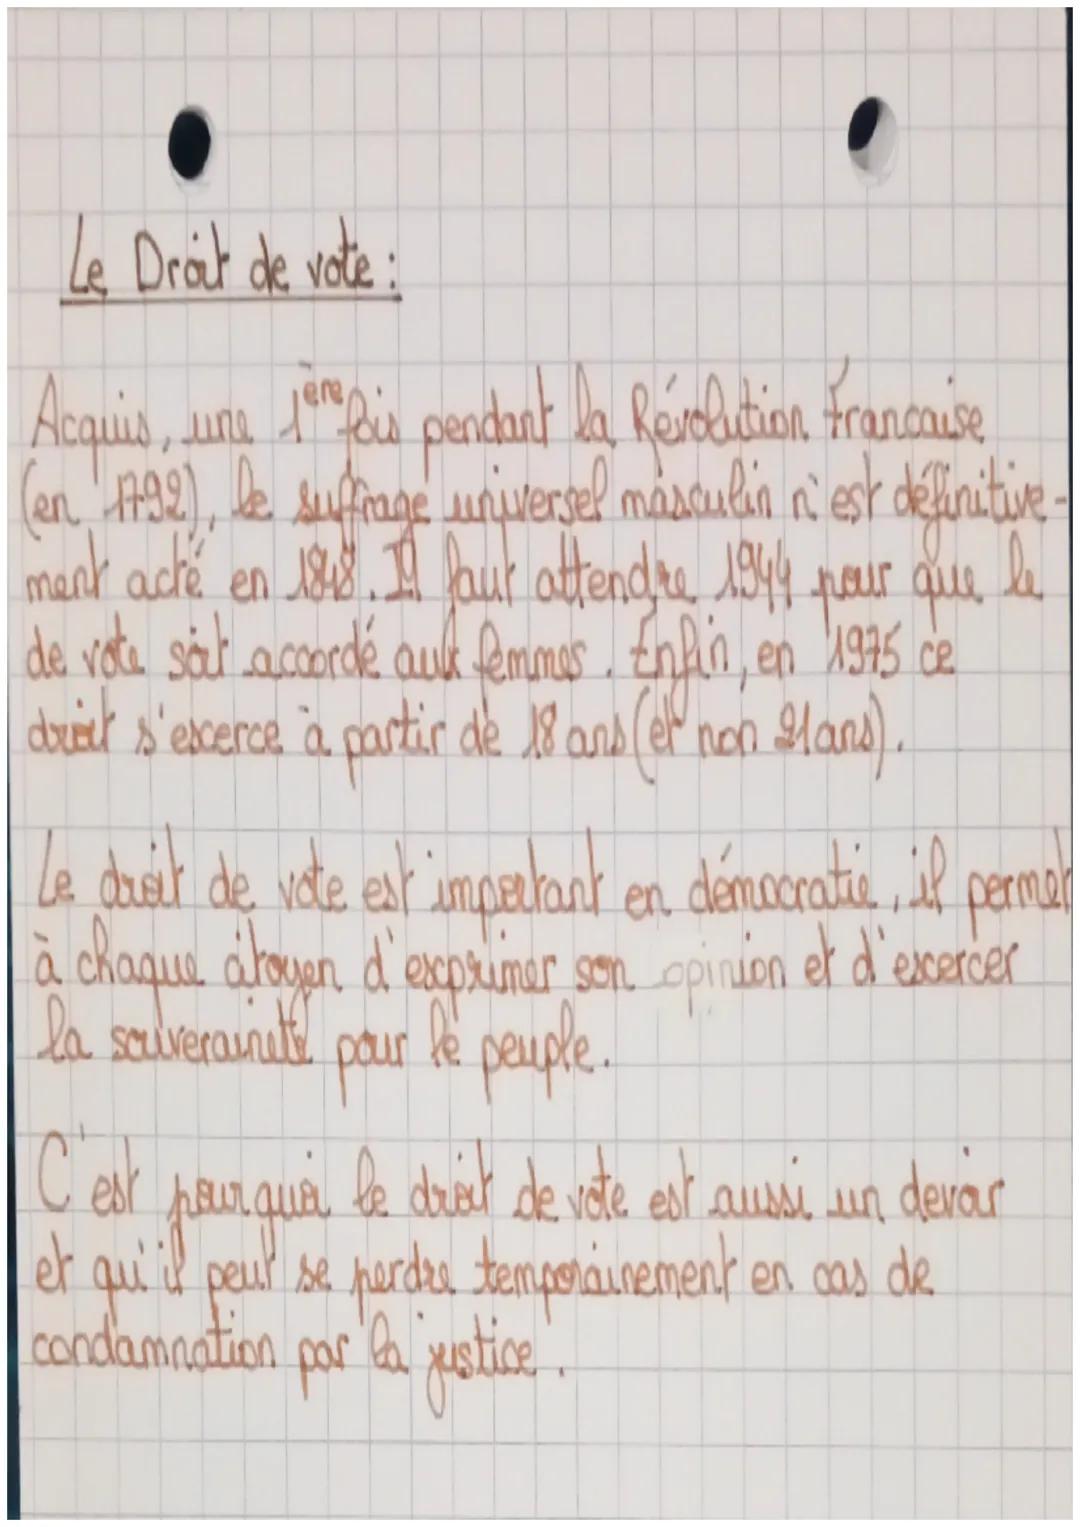 Le Droit de vote :
Acquis, une 1ère fois pendant la Révolution Francaise
(en 1792), le suffrage universel masculin n'est définitive-
ment acté en 1848. Il faut attendre 1944 pour que le
de vote soit accordé aux femmes. Enfin, en 1975 ce
droit s'escerce à partir de 18 ans (et non 21 ans).
Le droit de vote est important en démocratie, il permet
à chaque citoyen d'exprimer son opinion et d'escercer
la souveraineté pour le peuple.
C'est pourquoi le droit de vote est aussi un devoir
et qu'il peut se perdre temporairement en cas de
condamnation par la justice.